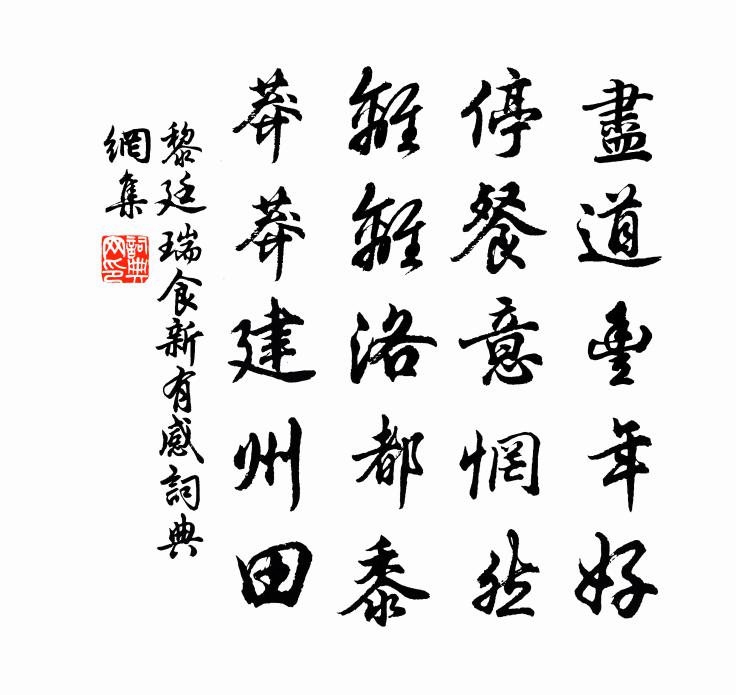 盡道豐年好
停餐意惘然
離離洛都黍
莽莽建州田
黎廷瑞食新有感詞典
網集
詞典網印